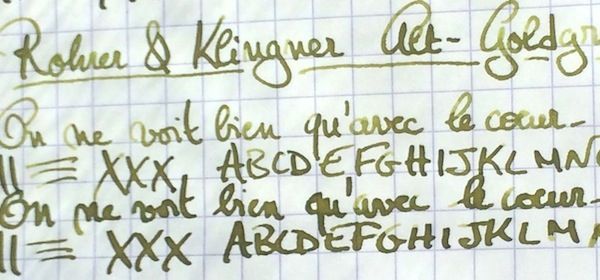 Rohrer & Klingner Alt-Goldgr
On ne voit bien qu'avec le cœur-
II ≡ XXX, ABCDEFGHIJKLMN
On ne voit bien qu'avec le cœur-
II ≡ XXX ABCDEFGHIJKLM